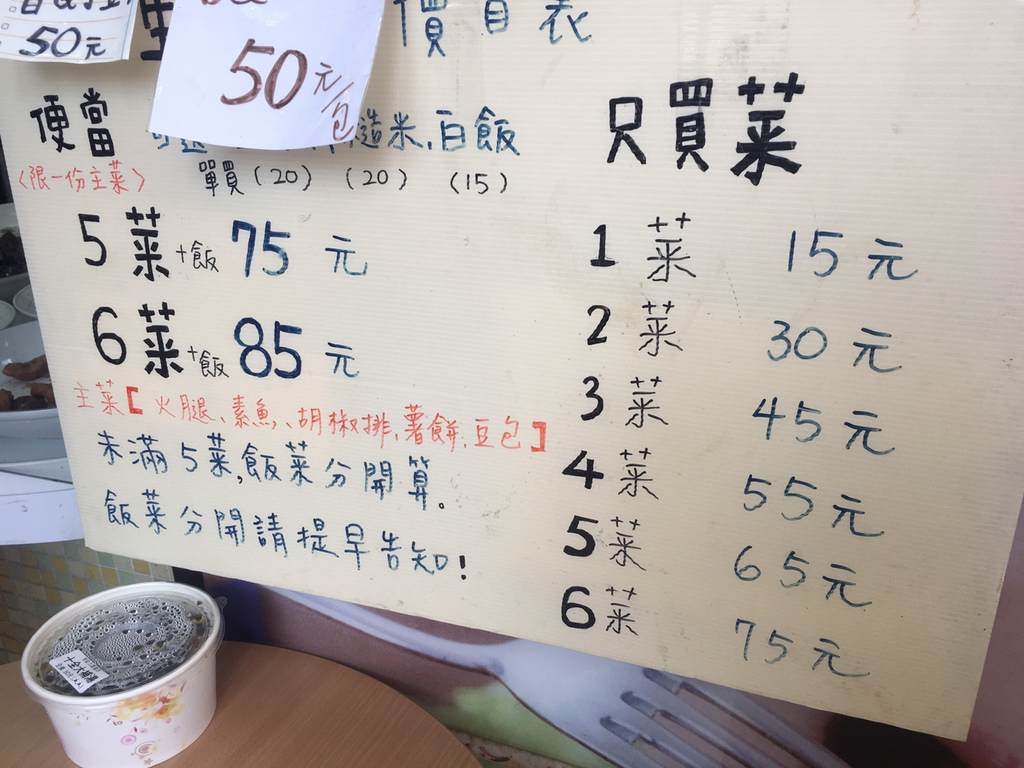 50元
50元/包
價目表
便當
糙米.白飯
〈限一份主菜〉
單買(20) (20) (15)
5菜+飯75元
6菜+飯85元
主菜[火腿、素魚、胡椒排、薯餅、豆包]
未滿5菜,飯菜分開算。
飯菜分開請提早告知!
只買菜
1菜 15元
2菜 30元
3菜 45元
4菜 55元
5菜 65元
6菜 75元